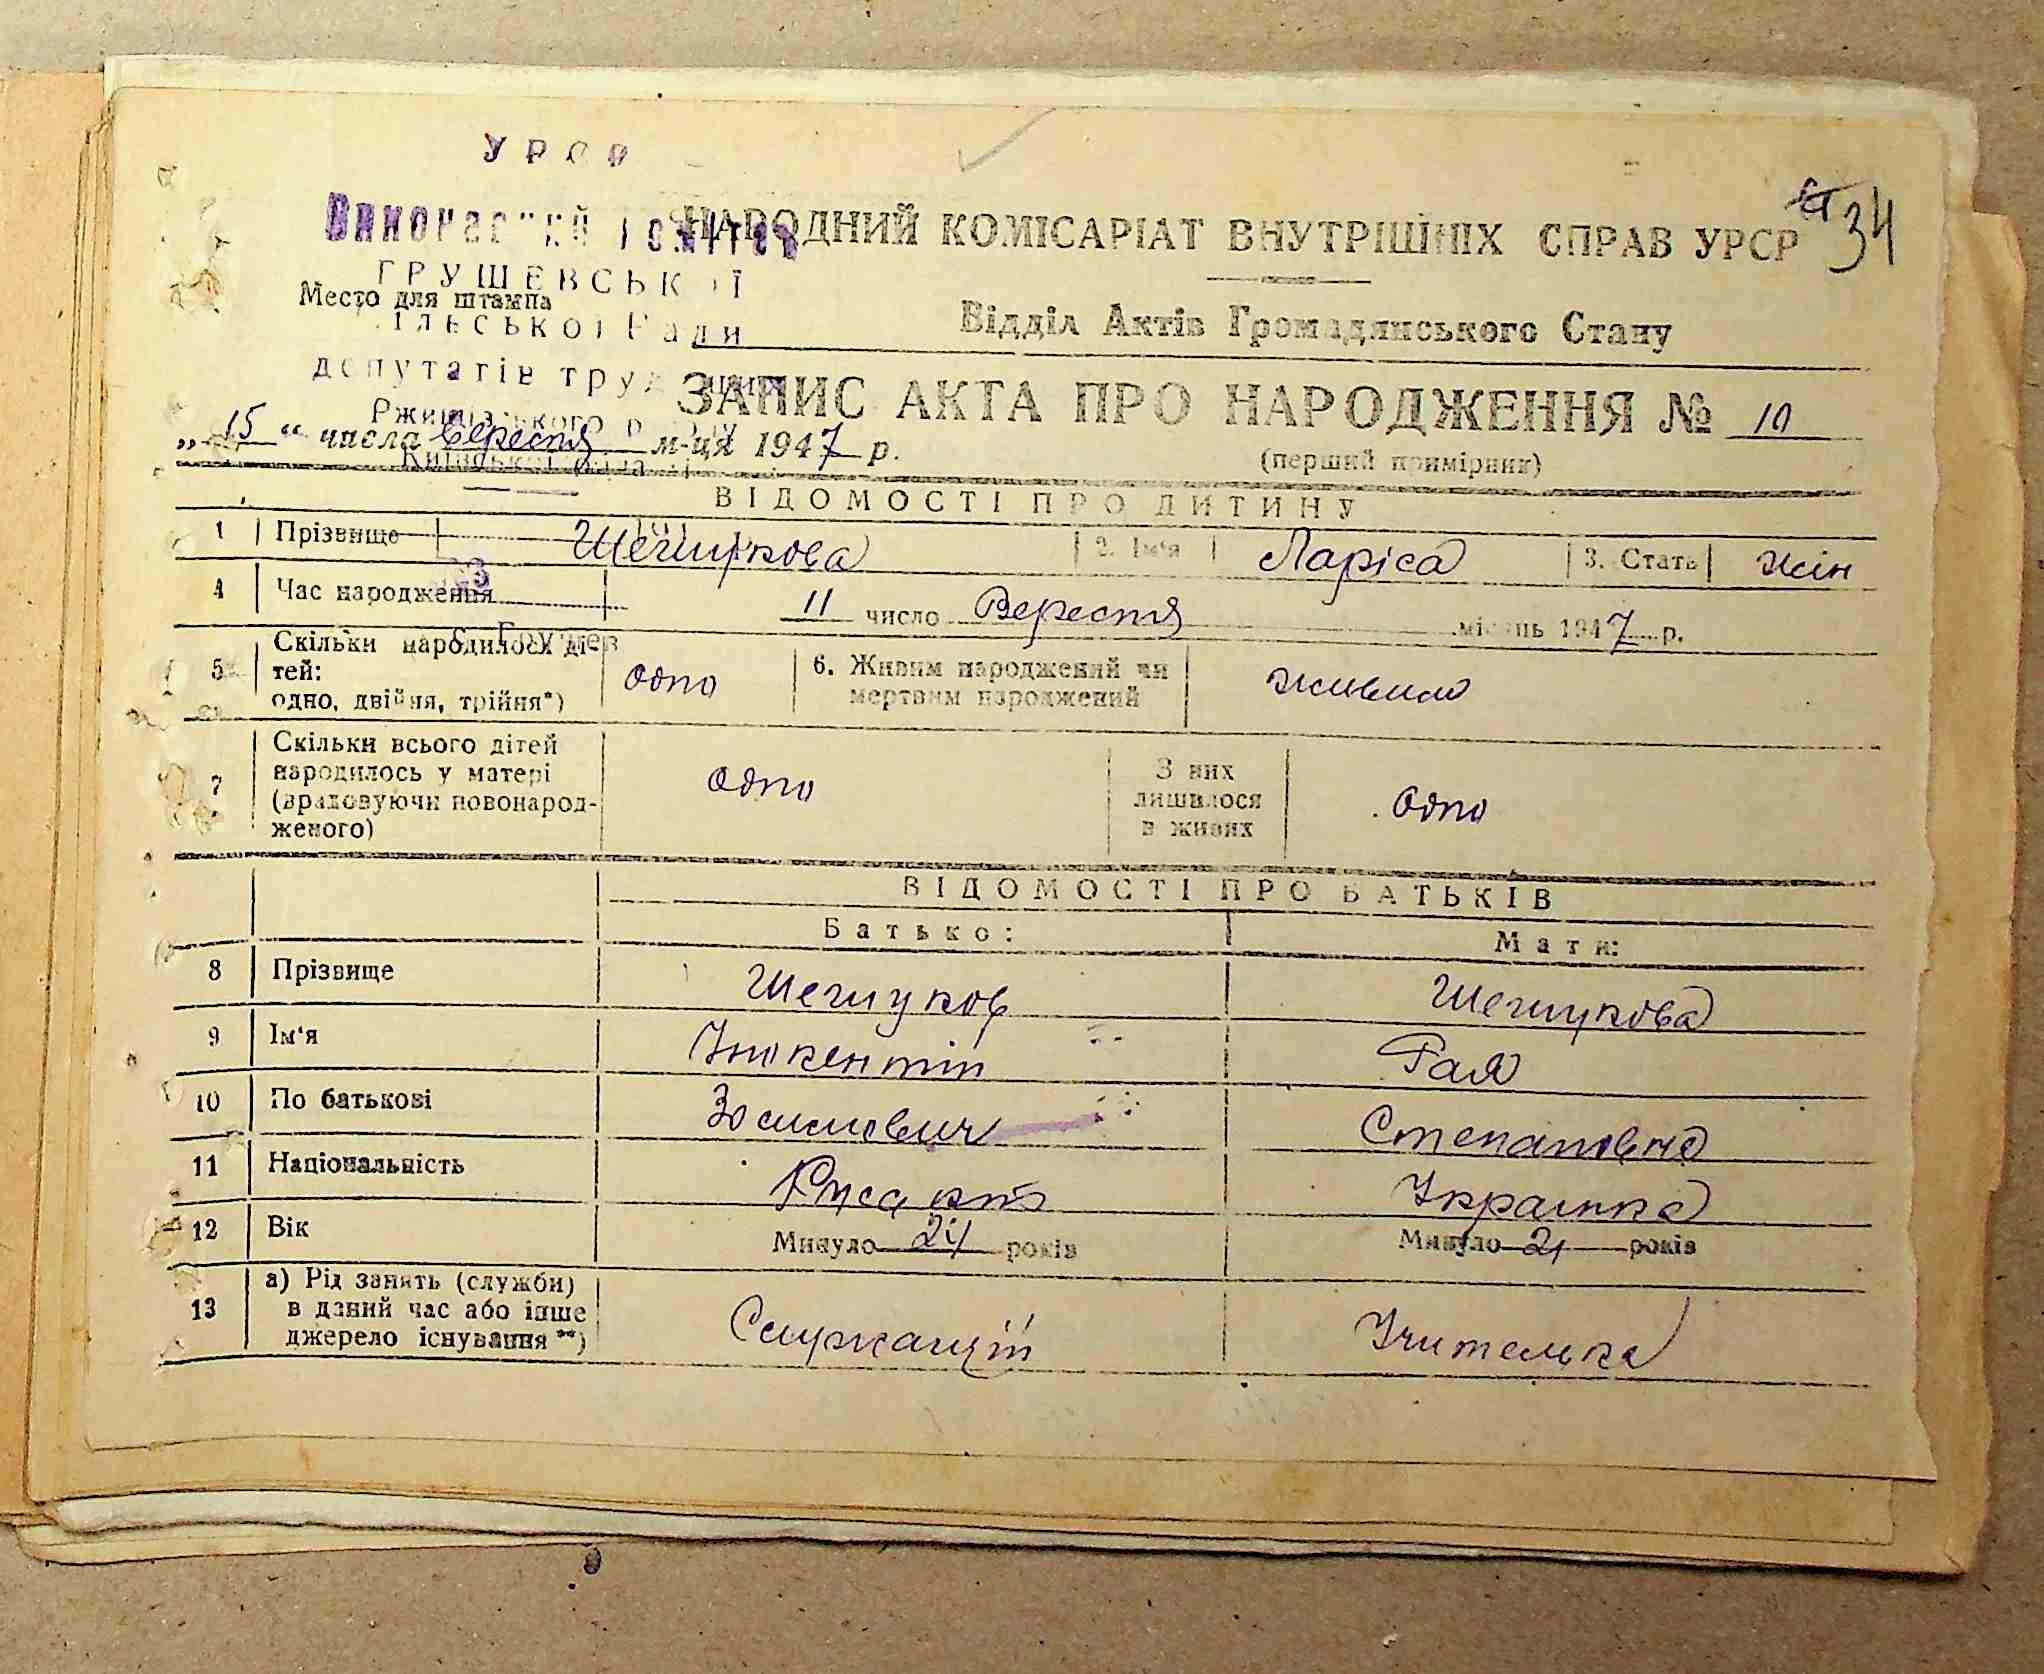 УРСР
34
Виконавчий комітет
НАРОДНИЙ КОМІСАРІАТ ВНУТРІШНІХ СПРАВ УРСР
ГРУШЕВСЬКОЇ
Место для штампа
Відділ Актів Громадянського Стану
сільської Ради
депутатів трудящих
ЗАПИС АКТА ПРО НАРОДЖЕННЯ № 10
Ржищівського р-ну
„15“ числа Вересня м-ця 1947 р.
(перший примірник)
Київської
ВІДОМОСТІ ПРО ДИТИНУ
1 Прізвище Шегшукова 2. Ім'я Лариса 3. Стать жін
4 Час народження 11 число Вересня місяць 1947 р.
5 Скільки народилося дітей: одно, двійня, трійня*) Одно 6. Живим народжений чи мертвим народжений живим
7 Скільки всього дітей народилось у матері (враховуючи новонародженого) Одно З них лишилося в живих Одно
ВІДОМОСТІ ПРО БАТЬКІВ
Батько: Мати:
8 Прізвище Шегшуков Шегшукова
9 Ім'я Інокентій Гая
10 По батькові Зосимович Степановна
11 Національність Українка
12 Вік Минуло 24 років Минуло 21 років
13 а) Рід занять (служби) в даний час або інше джерело існування **) Служащій Учителька